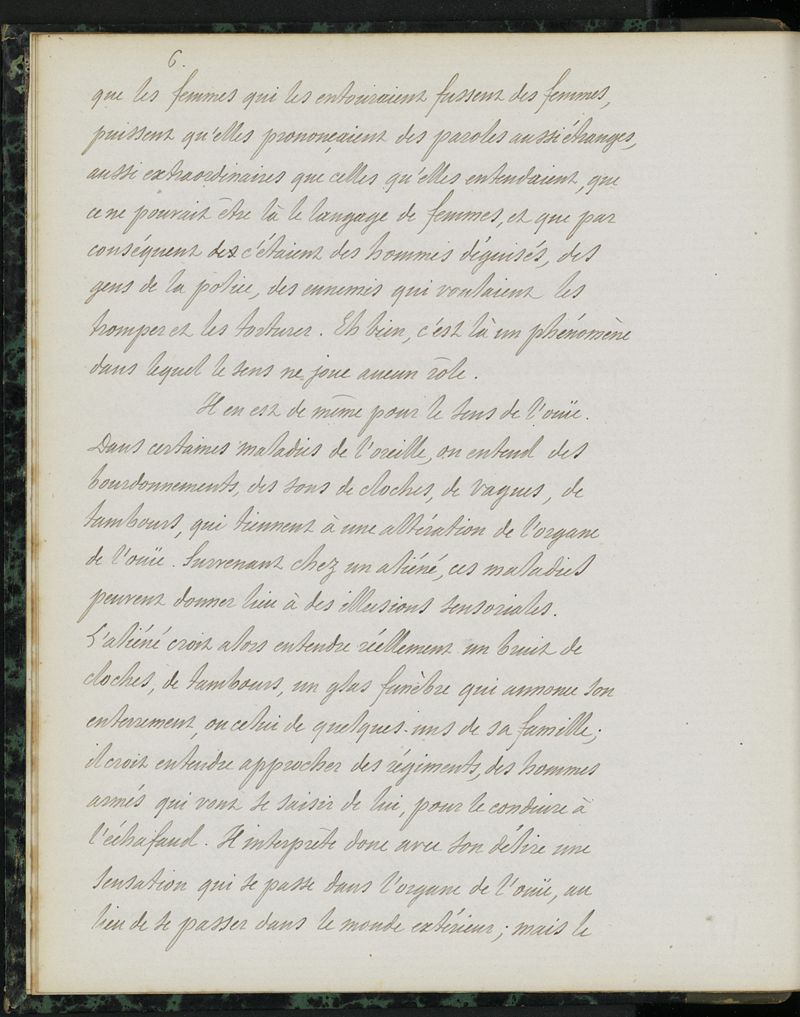 6.
que les femmes qui les entouraient fussent des femmes,
puissent qu'elles prononçaient des paroles aussi étranges,
aussi extraordinaires que celles qu'elles entendaient, que
ce ne pouvait être là le langage de femmes, et que par
conséquent des c'étaient des hommes déguisés, des
gens de la police, des ennemis qui voulaient les
tromper et les torturer. Eh bien, c'est là un phénomène
dans lequel le sens ne joue aucun rôle.
Il en est de même pour le sens de l'ouïe.
Dans certaines maladies de l'oreille, on entend des
bourdonnements, des sons de cloches, de vagues, de
tambours, qui tiennent à une altération de l'organe
de l'ouïe. Survenant chez un aliéné, ces maladies
peuvent donner lieu à des illusions sensoriales.
L'aliéné croit alors entendre réellement un bruit de
cloches, de tambours, un glas funèbre qui annonce son
enterrement, ou celui de quelques-uns de sa famille;
il croit entendre approcher des régiments, des hommes
armés qui vont se saisir de lui, pour le conduire à
l'échafaud. Il interprète donc avec son délire une
sensation qui se passe dans l'organe de l'ouïe, au
lieu de se passer dans le monde extérieur; mais le